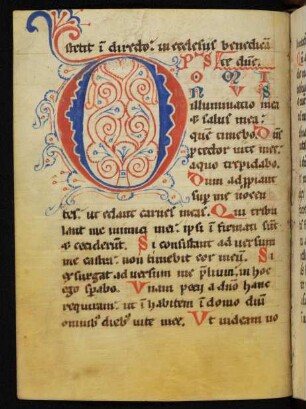 stetit i directo. in ecclesiis benedicā
te dn̄e. P̄S
D O M I
N U S
illuminatio mea
& salus mea:
quē timebo. Dn̄s
ꝓtector uite mee:
a quo trepidabo.
Dum adp̄piant
sup me nocen
tes. ut edant carnes meas. Qui tribu
lant me inimici mei: ipsi ī firmati sunt
& ceciderunt. Si consistant aduersum
me castra: non timebit cor meū. Si
exsurgat aduersum me p̄lium: in hoc
ego sꝑabo. Vnam pecii a dn̄o hanc
requiram: ut ī habitem ī domo dn̄i
omnib; dieb; uite mee. Vt uideam uo